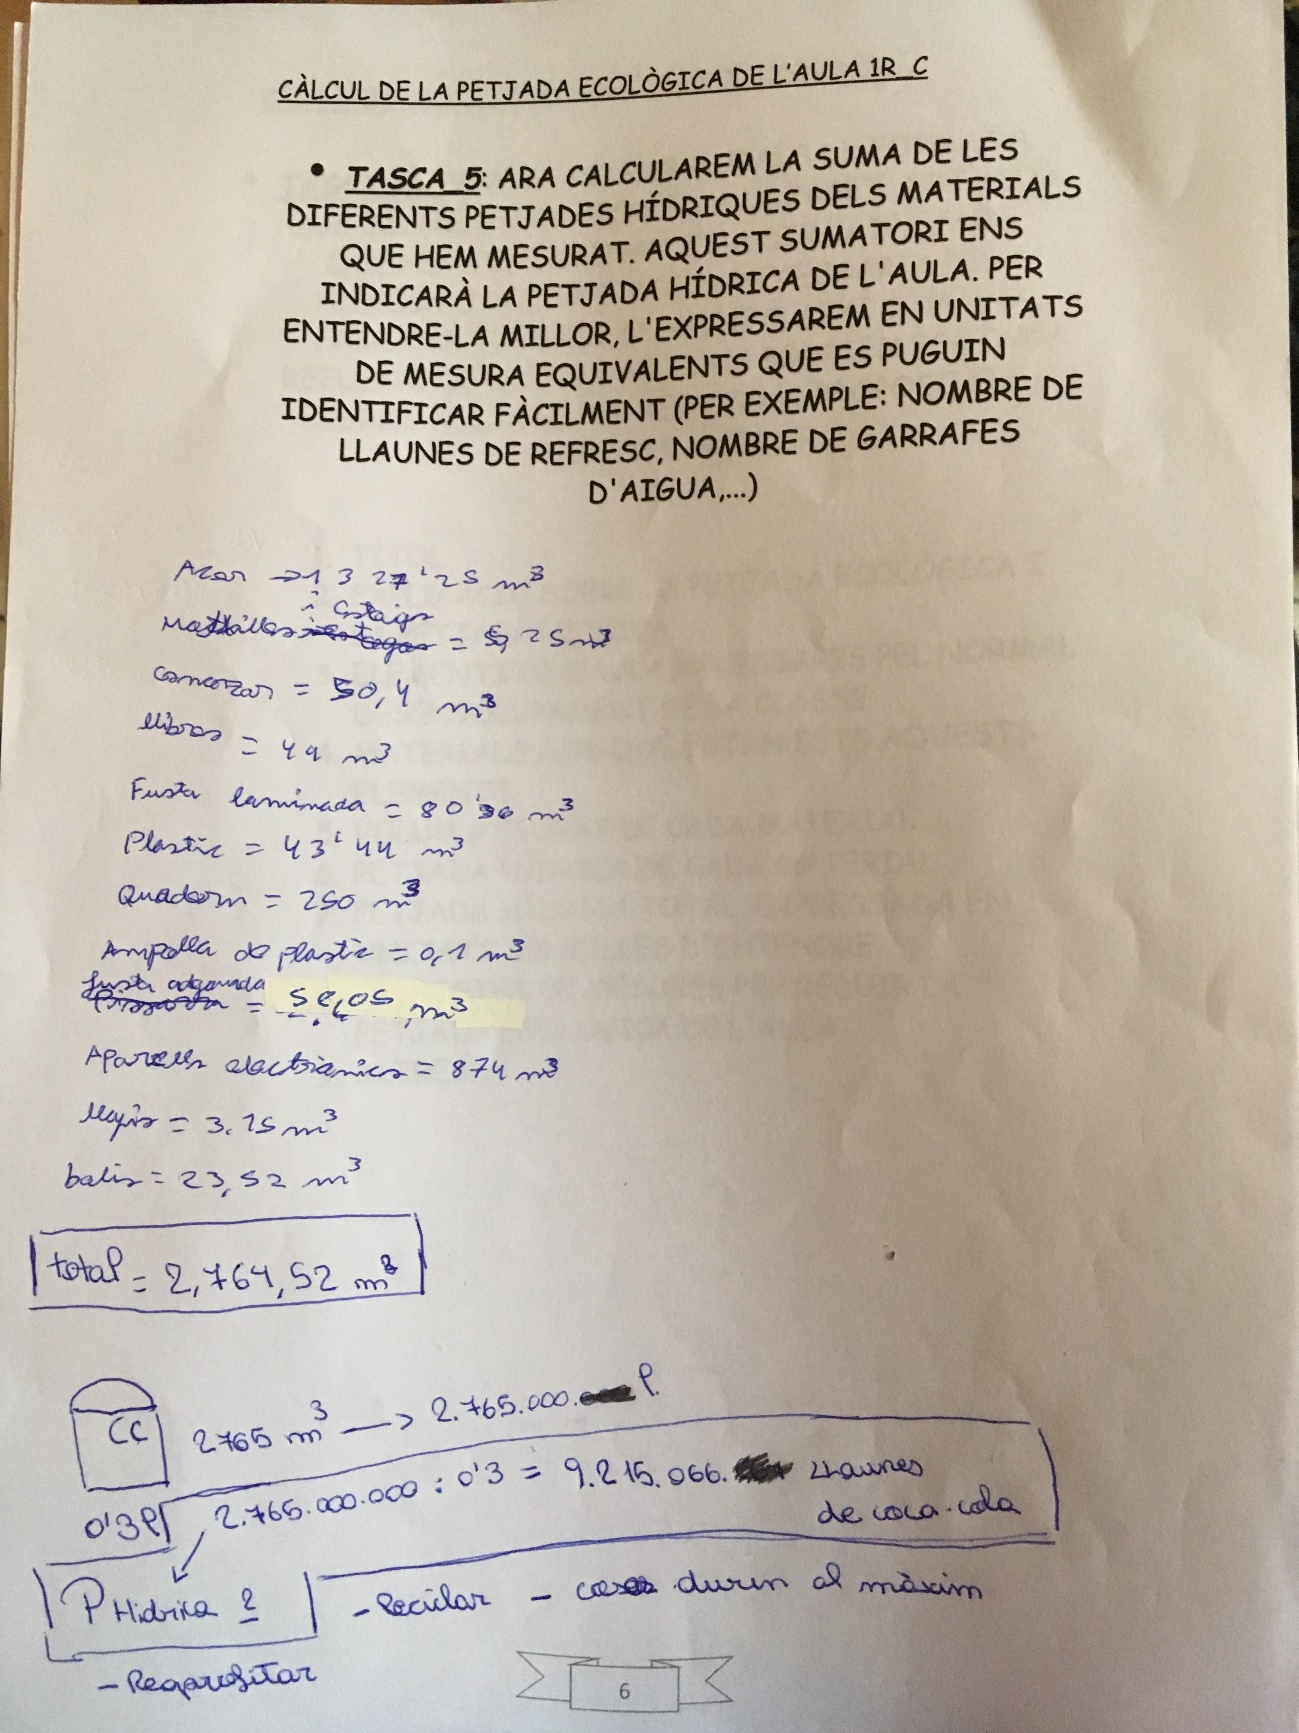 CÀLCUL DE LA PETJADA ECOLÒGICA DE L'AULA 1R_C
• TASCA_5: ARA CALCULAREM LA SUMA DE LES
DIFERENTS PETJADES HÍDRIQUES DELS MATERIALS
QUE HEM MESURAT. AQUEST SUMATORI ENS
INDICARÀ LA PETJADA HÍDRICA DE L'AULA. PER
ENTENDRE-LA MILLOR, L'EXPRESSAREM EN UNITATS
DE MESURA EQUIVALENTS QUE ES PUGUIN
IDENTIFICAR FÀCILMENT (PER EXEMPLE: NOMBRE DE
LLAUNES DE REFRESC, NOMBRE DE GARRAFES
D'AIGUA,...)
Acer → 1327'25 m³
i Estoigs
= 5,25 m³
= 50,4 m³
llibres = 49 m³
Fusta laminada = 80'36 m³
Plastic = 43'44 m³
Quadern = 250 m³
Ampolla de plastic = 0,1 m³
fusta
= m³
Aparells electronics = 874 m³
llapis = 3.25 m³
bolis = 23,52 m³
total = 2,764,52 m³
CC
2765 m³ → 2.765.000. l.
0'3l
2.765.000.000 : 0'3 = 9.215.066. LLaunes
de coca-cola
P Hidrica ?
- Reciclar - durin al màxim
- Reaprofitar
6